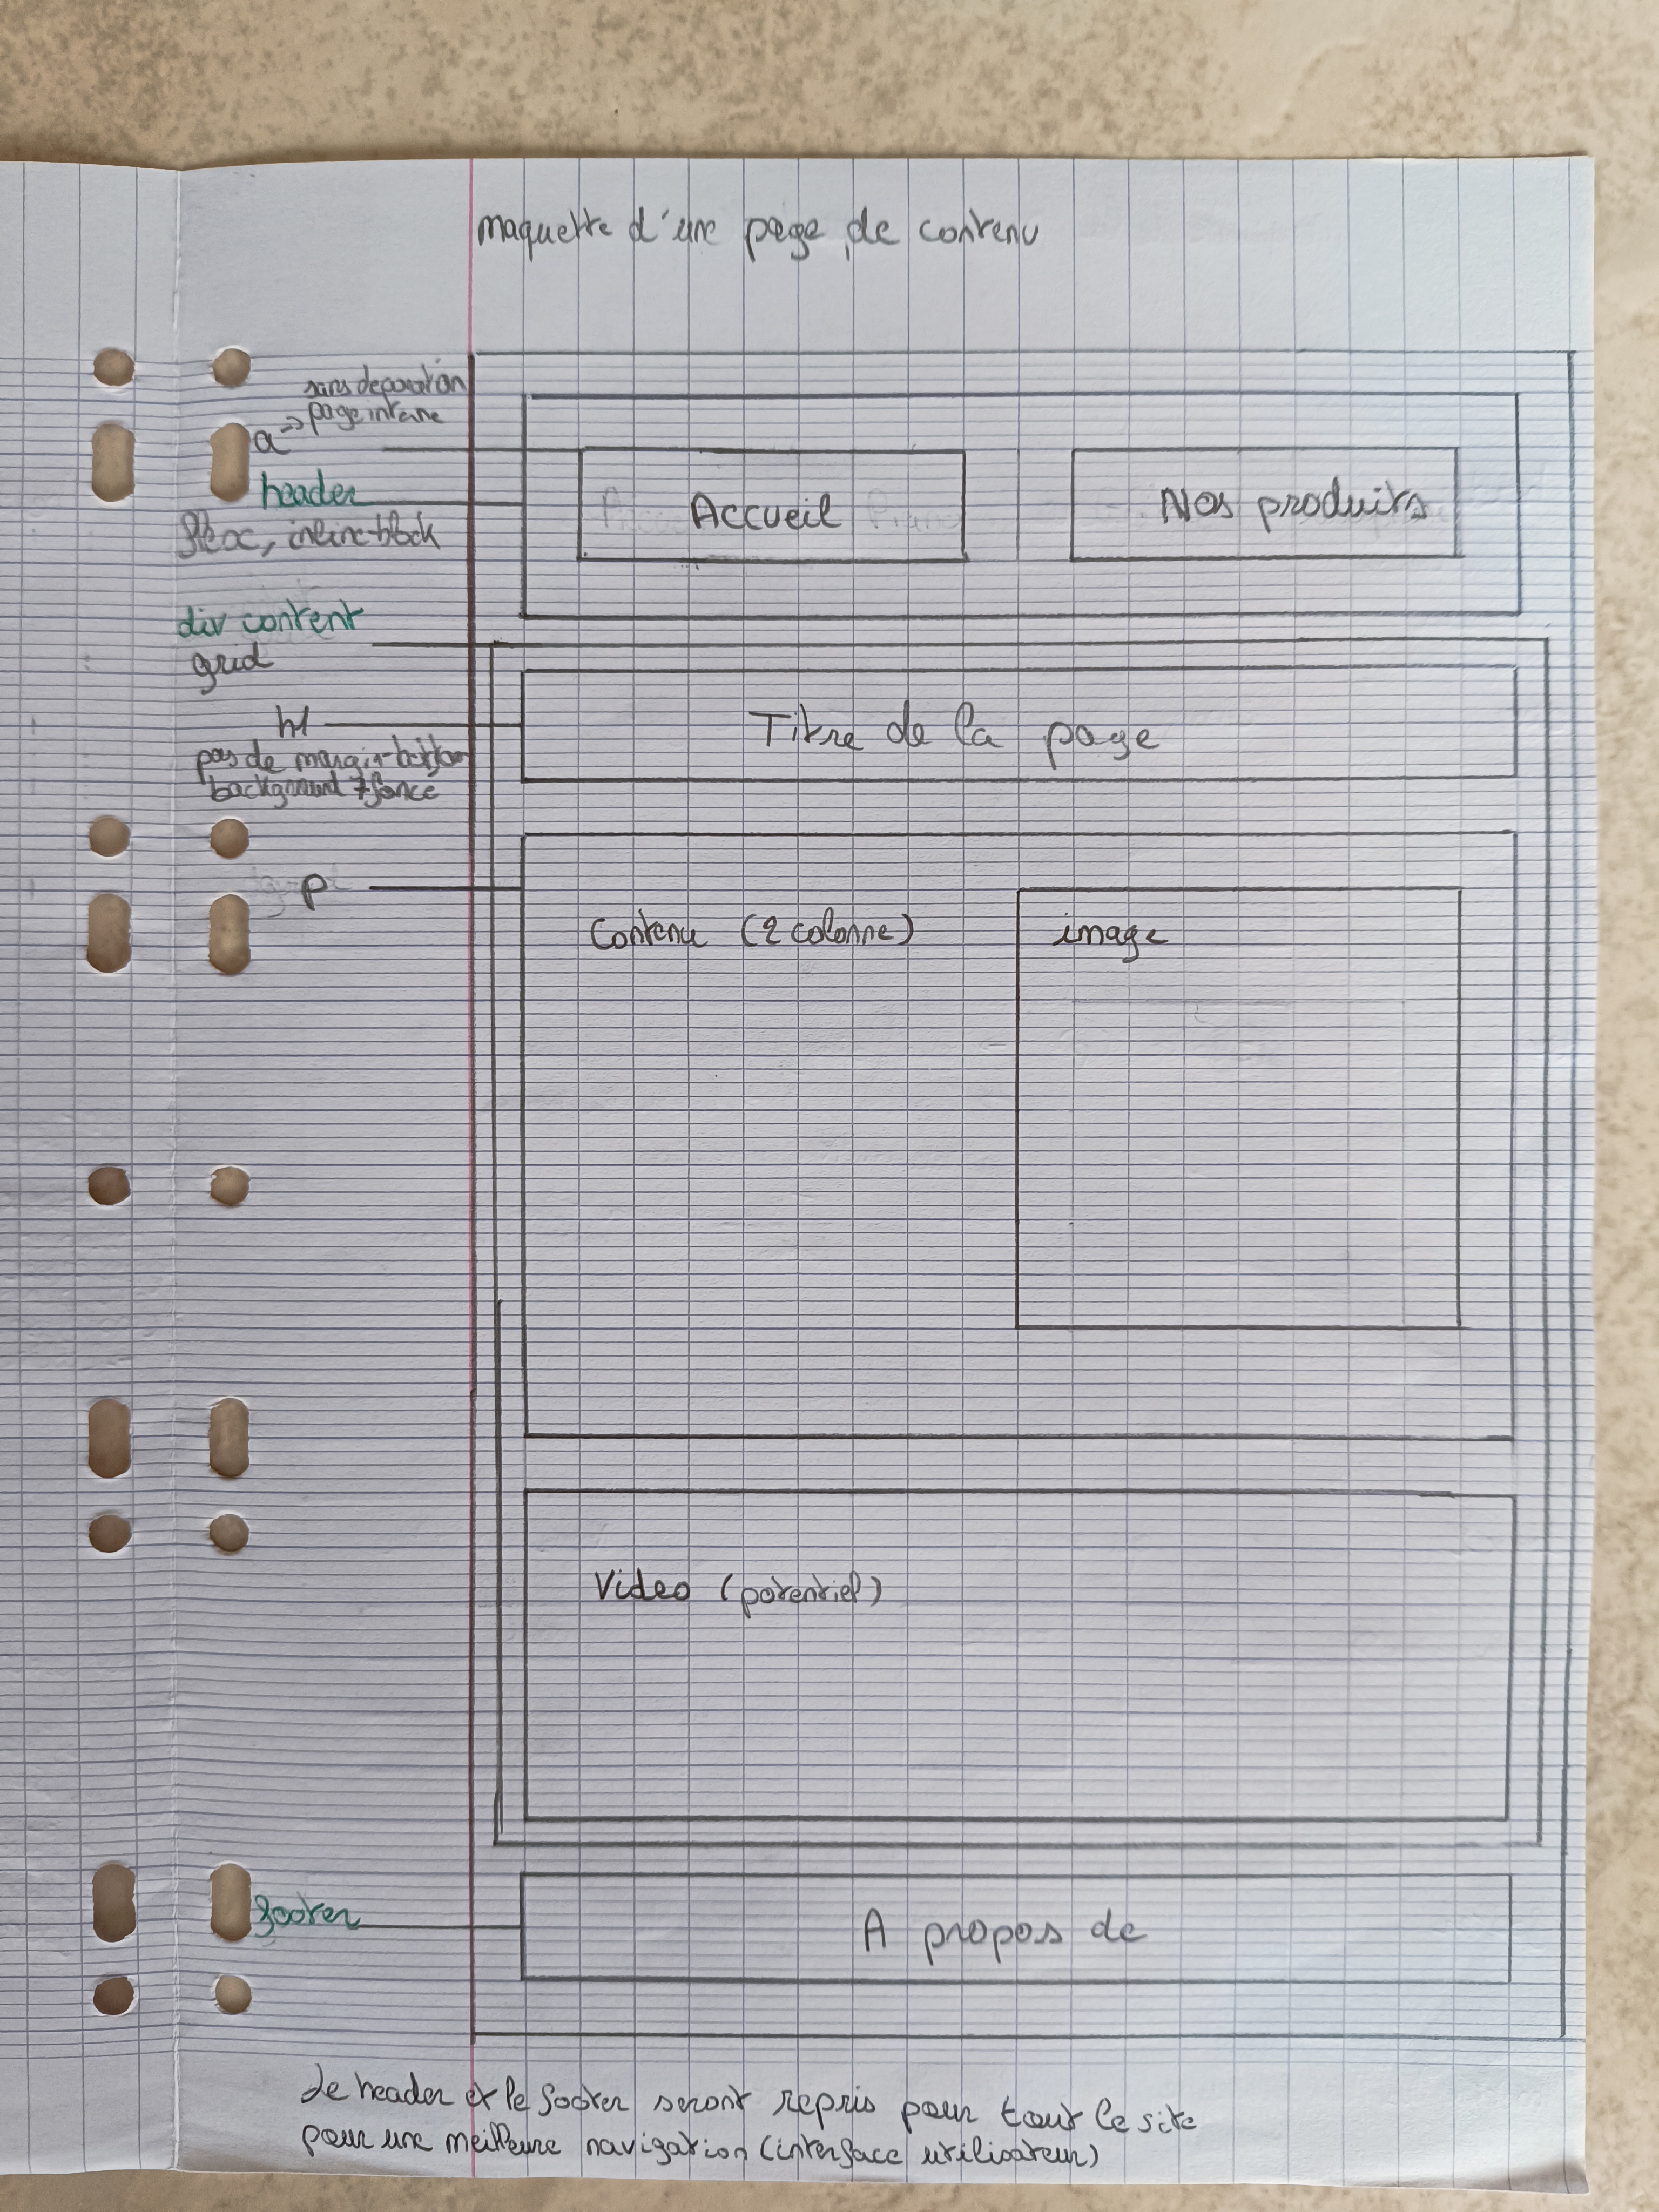 maquette d'une page de contenu
sans deporation
a -> page interne
header
Accueil
Nos produits
inline-block
div content
grid
h1
Titre de la page
pas de margin-bottom
background + fonce
p
Contenu (2 colonne)
image
Video (potentiel)
footer
A propos de
Le header et le footer seront repris pour tout le site
pour une meilleure navigation (interface utilisateur)